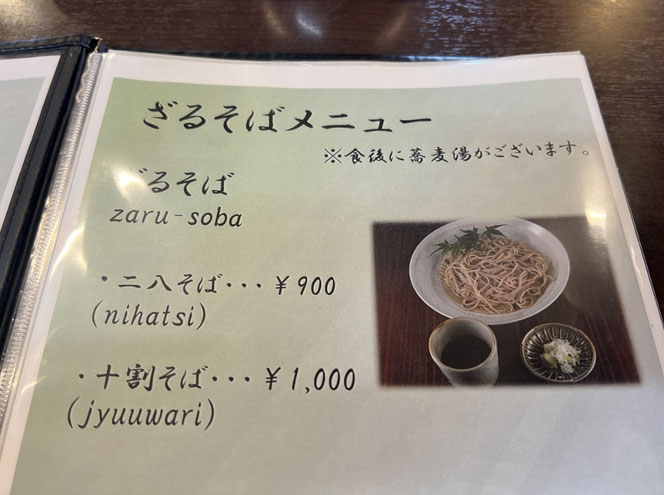 ざるそばメニュー
※食後に蕎麦湯がございます。
ざるそば
zaru-soba
・二八そば・・・¥900
(nihatsi)
・十割そば・・・¥1,000
(jyuuwari)